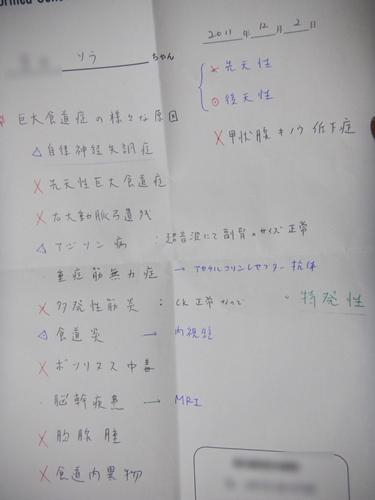 ソラ ちゃん
2011年12月2日
× 先天性
⊙ 後天性
× 甲状腺キノウ低下症
巨大食道症の様々な原因
△ 自律神経失調症
× 先天性巨大食道症
× 右大動脈弓遺残
△ アジソン病 : 超音波にて副腎のサイズ正常
・ 重症筋無力症 → アセチルコリンレセプター抗体
× 多発性筋炎 : CK正常なので
・特発性
△ 食道炎 → 内視鏡
× ボツリヌス中毒
・ 脳幹疾患 → MRI
× 胸腺腫
× 食道内異物